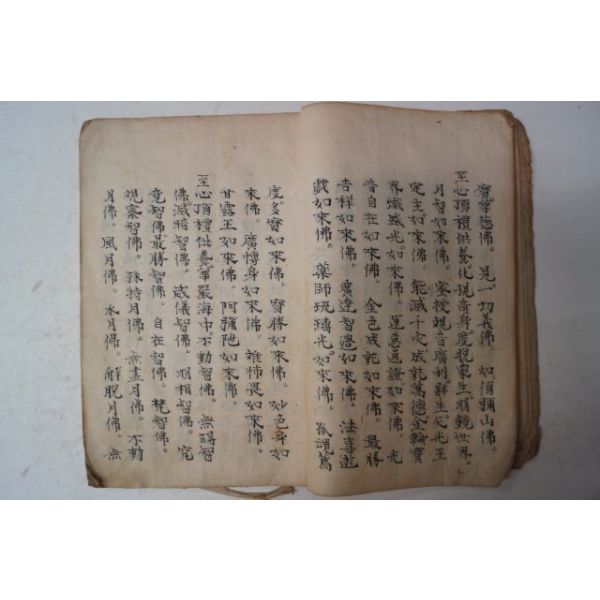 寶華德佛。見一切義佛。如須彌山佛。
至心頂禮供養化現奇身度脫衆生須鏡世界。
月智如來佛。密授觀音廣利群生大光王
定主如來佛。能滅千灾成就萬德金輪寶
界熾盛光如來佛。運意通證如來佛。光
音自在如來佛。金色成就如來佛。最勝
吉祥如來佛。廣達智辯如來佛。法喜遊
戱如來佛。藥師琉璃光如來佛。孤魂蔫
度。多寶如來佛。寶勝如來佛。妙色身如
來佛。廣博身如來佛。離怖畏如來佛。
甘露王如來佛。阿彌陁如來佛。
至心頂禮供養華嚴海中不動智佛。無碍智
佛。滅暗智佛。威儀智佛。明相智佛。究
竟智佛。最勝智佛。自在智佛。梵智佛。
觀察智佛。殊特月佛。無盡月佛。不動
月佛。風月佛。水月佛。解脫月佛。無